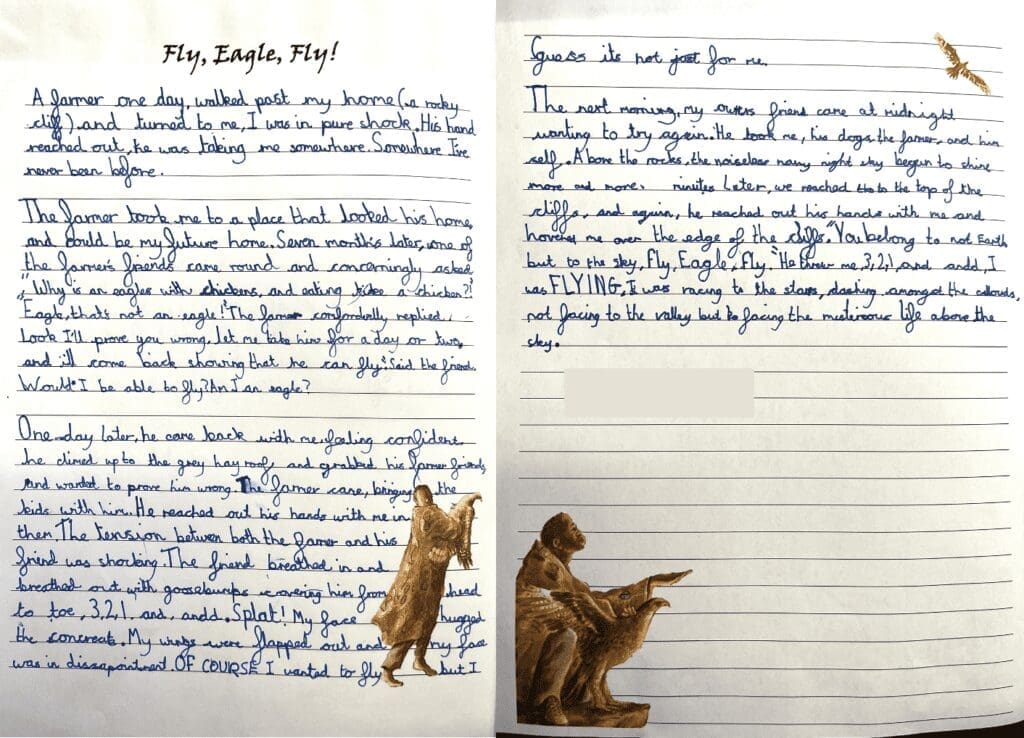 Fly, Eagle, Fly!
A farmer one day, walked past my home (a rocky
cliff) and turned to me, I was in pure shock. His hand
reached out, he was taking me somewhere. Somewhere I've
never been before.
The farmer took me to a place that looked his home,
and could be my future home. Seven months later, one of
the farmer's friends came round and concerningly asked
"Why is an eagles with chickens, and eating like a chicken?!
Eagle, that's not an eagle!" The farmer confordally replied.
Look I'll prove you wrong, let me take him for a day or two,
and ill come back showing that he can fly". Said the friend.
Would I be able to fly? Am I an eagle?
One day later, he came back with me, feeling confident.
he climed up to the grey hay roof, and grabbed his farmer friend,
and wanted to prove him wrong. The farmer came, bringing the
kids with him. He reached out his hands with me in
them. The tension between both the farmer and his
friend was shocking. The friend breathed in and
breathed out with goosebumps covering him from head
to toe, 3, 2, 1, and, andd. Splat! My face hugged
the concreate. My wings were flapped out and my face
was in dissapointment. OF COURSE I wanted to fly but I
guess its not just for me.
The next morning, my owners friend came at midnight
wanting to try again. He took me, his dogs, the farmer, and him
self. Above the rocks, the noiseless navy night sky begun to shine
more and more. minutes Later, we reached to the top of the
cliffs, and again, he reached out his hands with me and
hovered me over the edge of the cliffs. "You belong to not Earth
but to the sky, Fly, Eagle, Fly." He threw me, 3, 2, 1, and andd, I
was FLYING, I was racing to the stars, dashing amongst the clouds,
not facing to the valley but to facing the misterious life above the
sky.